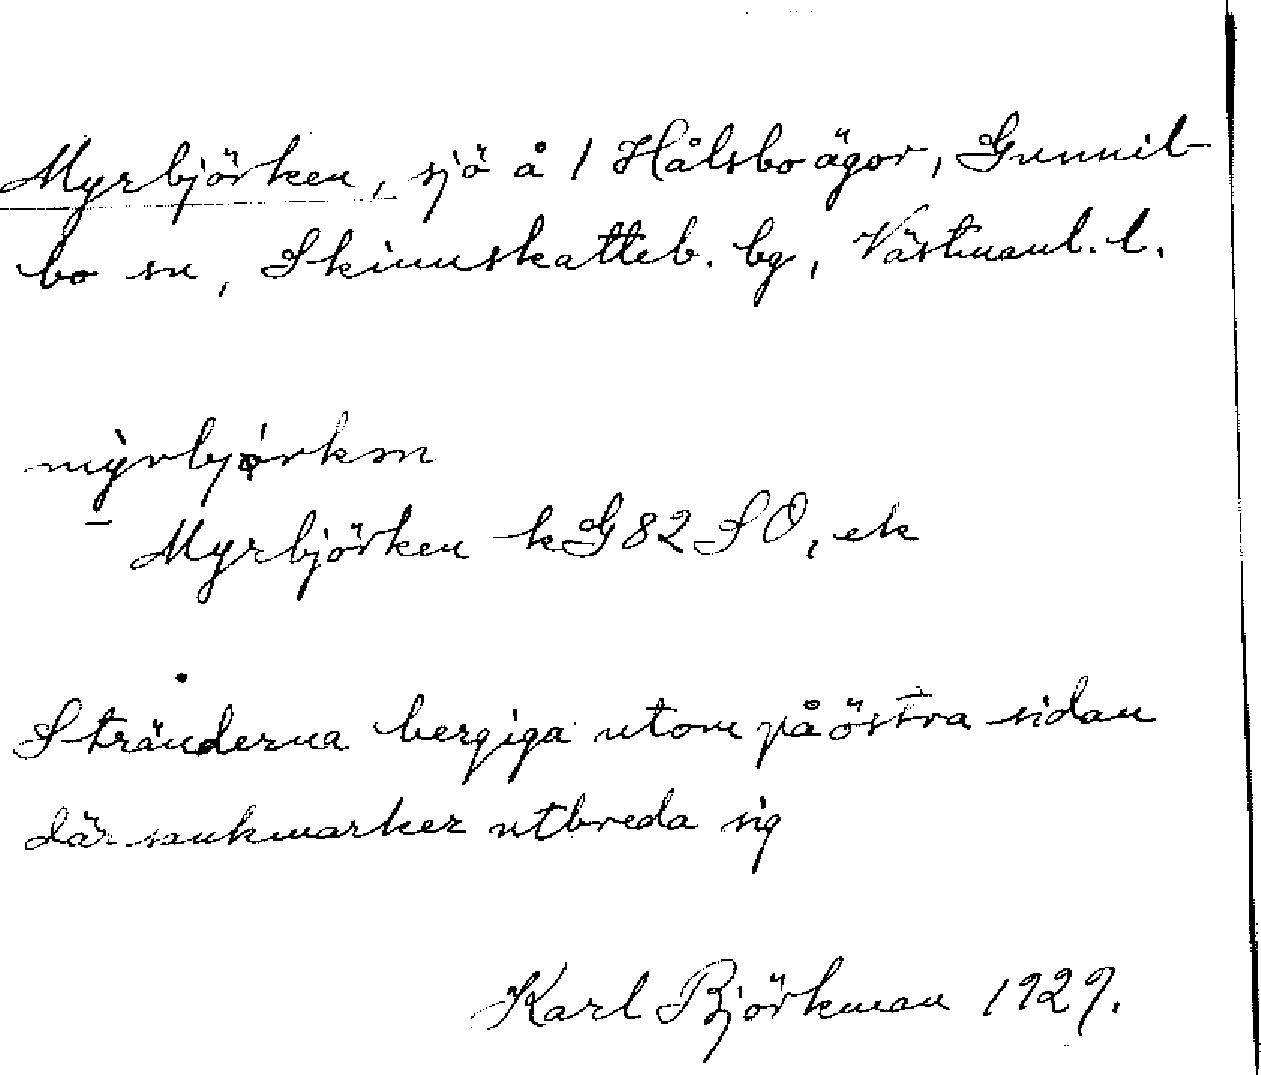 Myrbjörken, sjö å 1 Hålsbo ägor, Gunnil-
bo sn, Skinnskatteb. bg, Västmanl. l.
mỳrbjørkən
Myrbjörken kG82SO, ek
Stränderna bergiga utom på östra sidan
där sankmarker utbreda sig
Karl Björkman 1929.